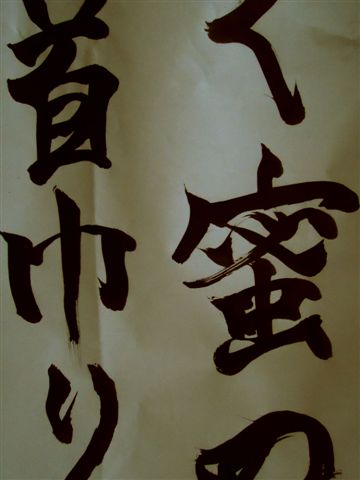 く蜜の
首巾り